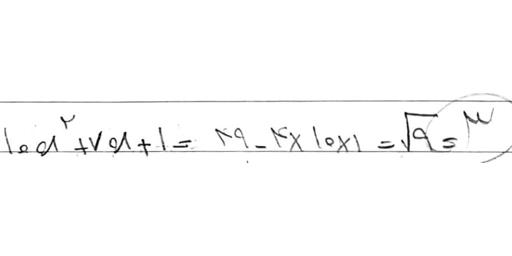 ۱۰x² + ۷x + ۱ = ۴۹ - ۴ × ۱۰ × ۱ = √۹ = ۳